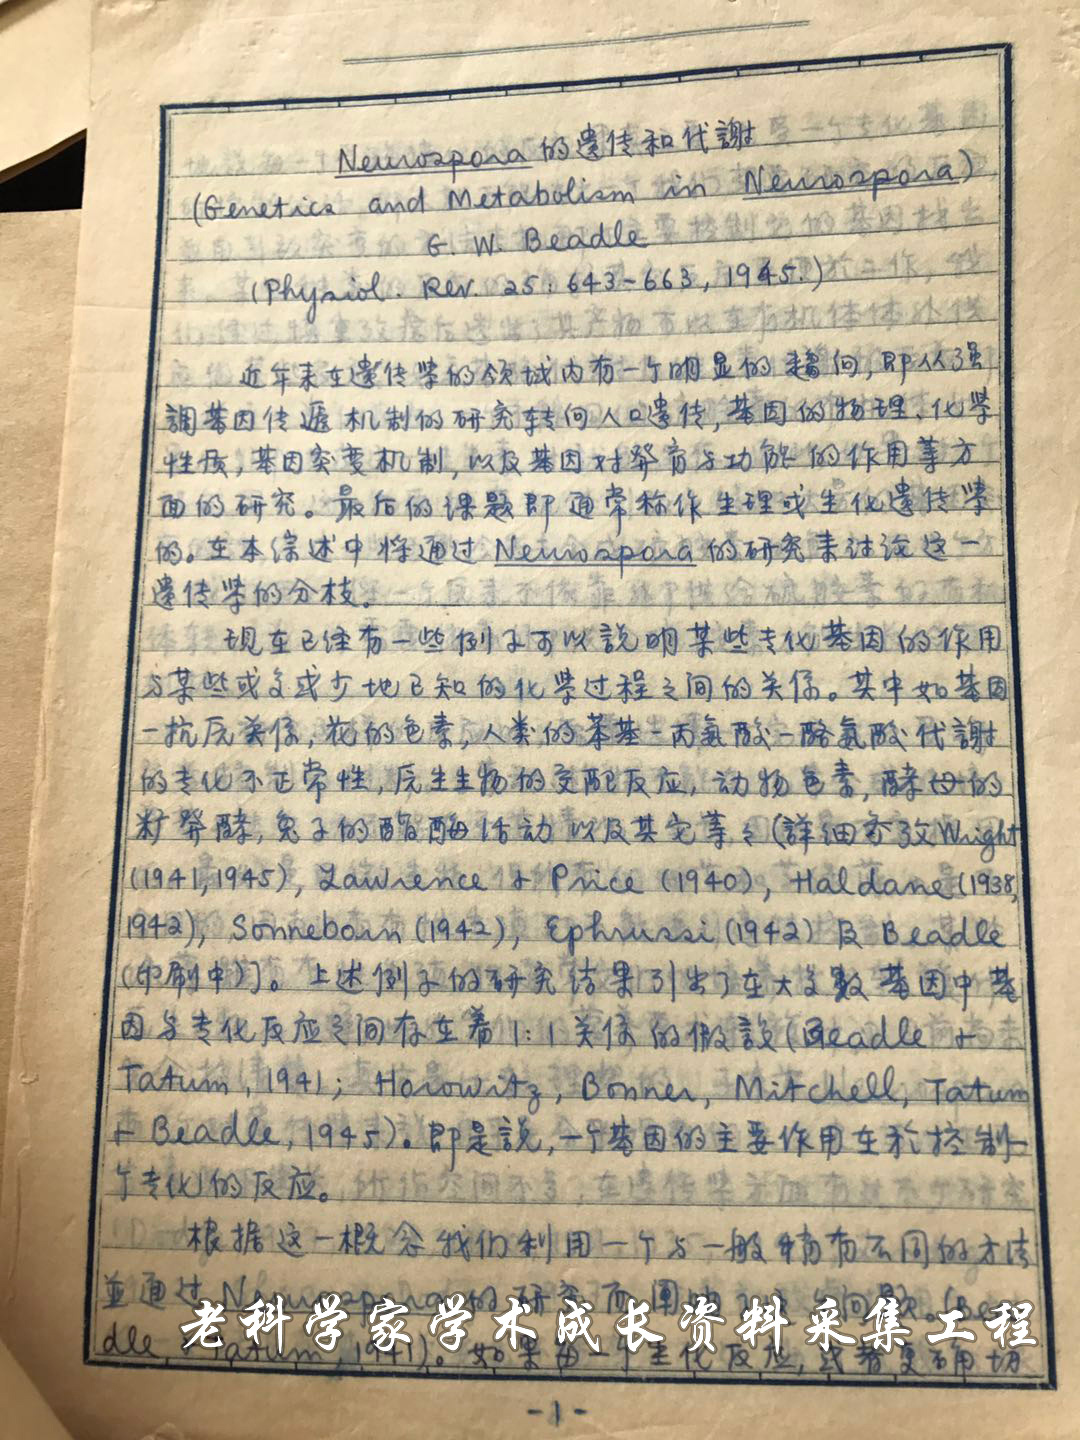 Neurospora 的遺传和代謝
(Genetics and Metabolism in Neurospora)
G. W. Beadle
(Physiol. Rev. 25: 643-663, 1945.)
近年来在遺传学的领域内有一个明显的趨向,即从强
調基因传遞机制的研究转向人口遺传,基因的物理、化学
性质,基因突变机制,以及基因对発育与功能的作用等方
面的研究。最后的课题即通常称作生理或生化遺传学
的。在本综述中将通过 Neurospora 的研究来讨论这一
遺传学的分枝。
现在已经有一些例子可以説明某些专化基因的作用
与某些或多或少地已知的化学过程之间的关係。其中如基因
一抗原关係,花的色素,人类的苯基-丙氨酸-酪氨酸代謝
的专化不正常性,原生生物的交配反应,动物色素,酵母的
粁発酵,兔子的酯酶活动以及其它等々(詳细参攷Wright
(1941,1945), Lawrence & Price (1940), Haldane (1938,
1942), Sonneborn (1942), Ephrussi (1942) 及 Beadle
(印刷中)]。上述例子的研究结果引出了在大多数基因中基
因与专化反应之间存在着1:1关係的假設(Beadle &
Tatum, 1941; Horowitz, Bonner, Mitchell, Tatum
& Beadle, 1945)。即是說,一个基因的主要作用在於控制一
个专化的反应。
根据这一概念我们利用一个与一般稍有不同的方法
並通过 Neurospora 的研究而闡明 问题。(Bea-
dle, & Tatum, 1941)。如果每一个生化反应,或者更确切
-1-
老科学家学术成长资料采集工程